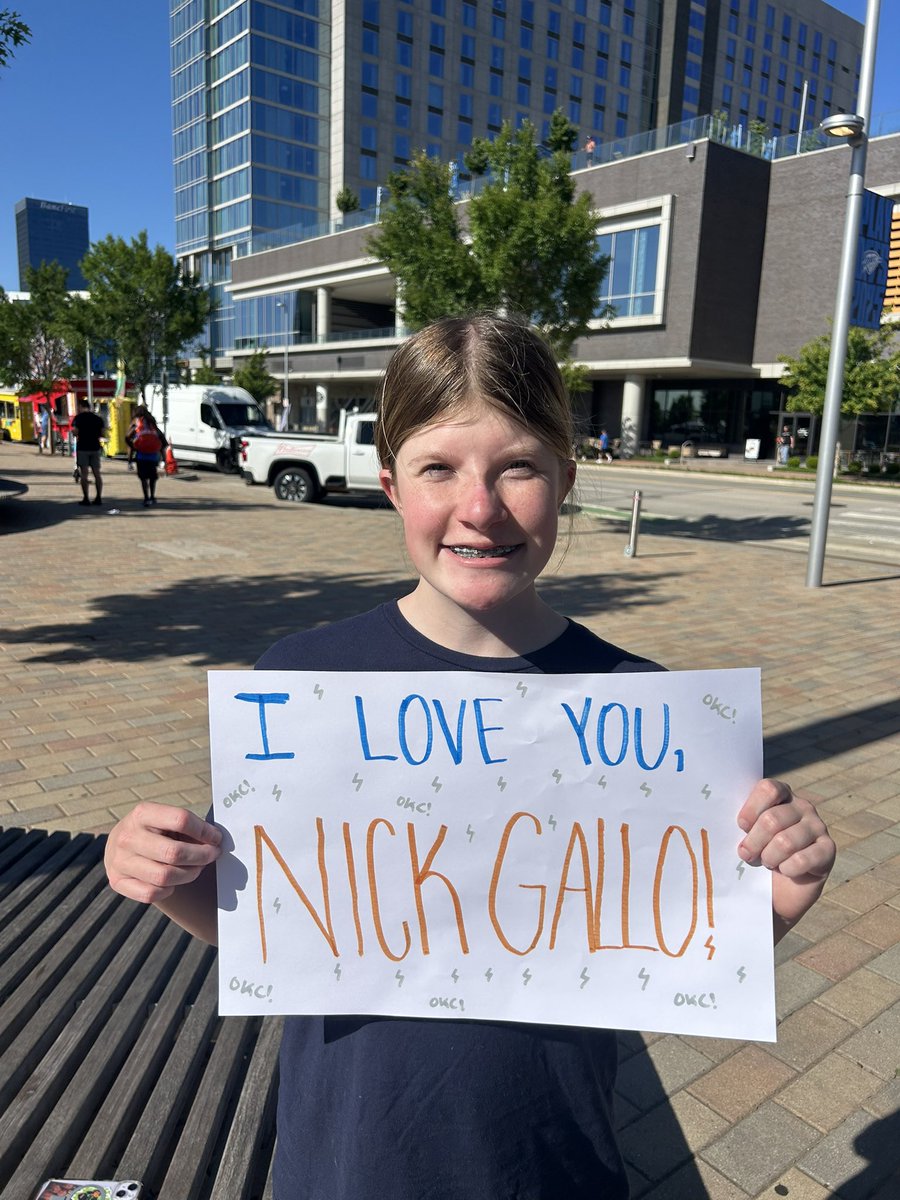 BancFirst
I LOVE YOU,
OKC!
OKC!
OKC!
NICK GALLO!
OKC!
OKC!
OKC!